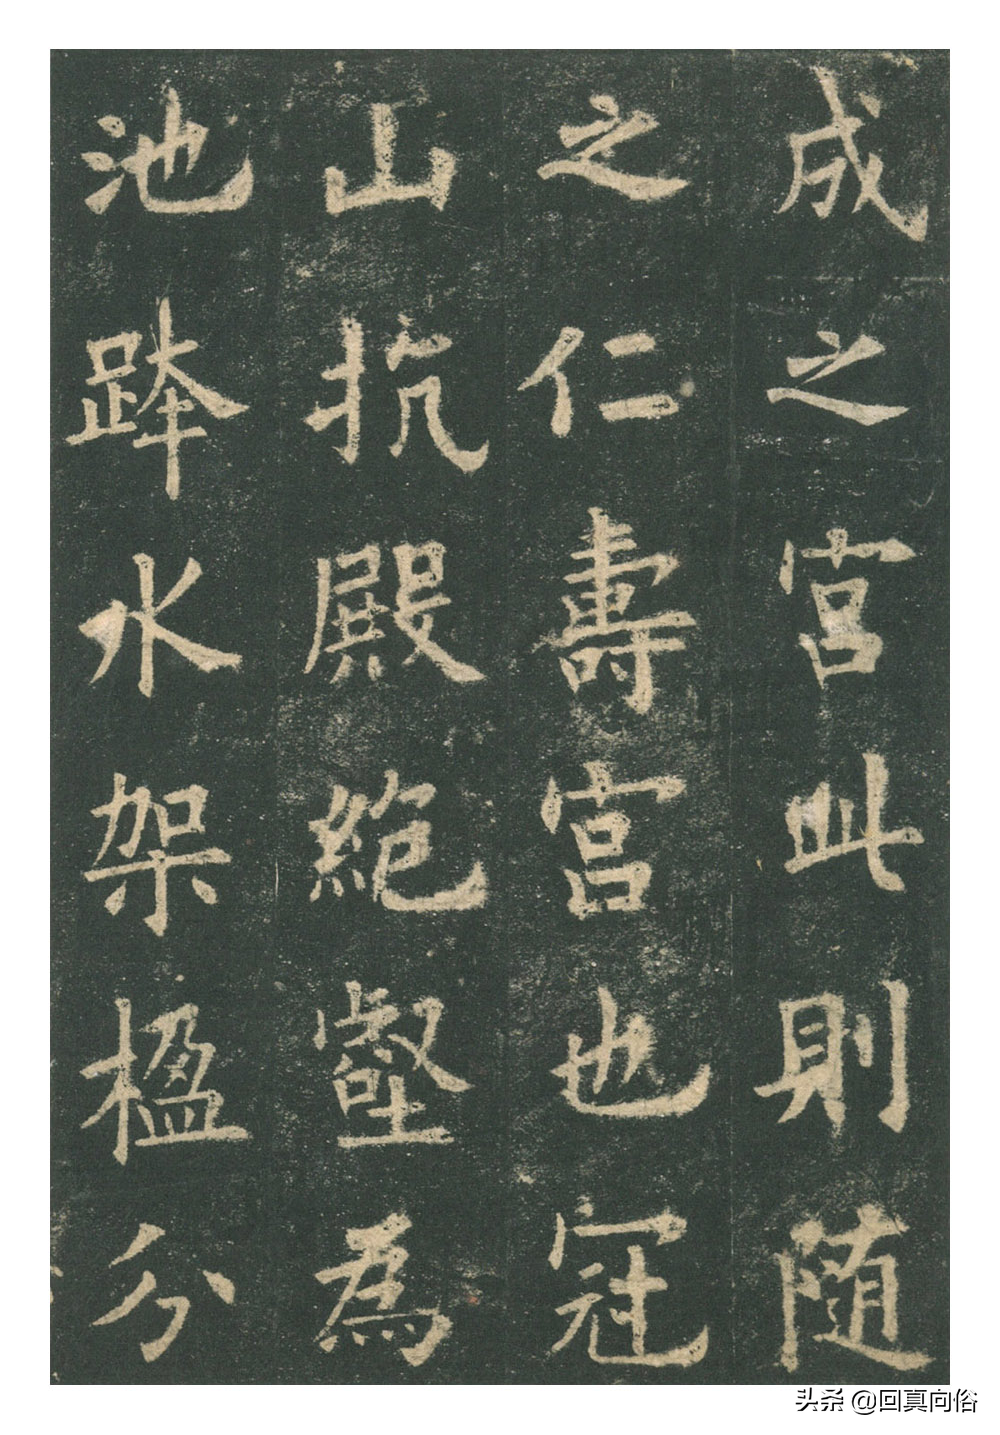 成之宮此則随
之仁壽宮也冠
山抗殿絶壑為
池跨水架楹分
头条 @回真向俗